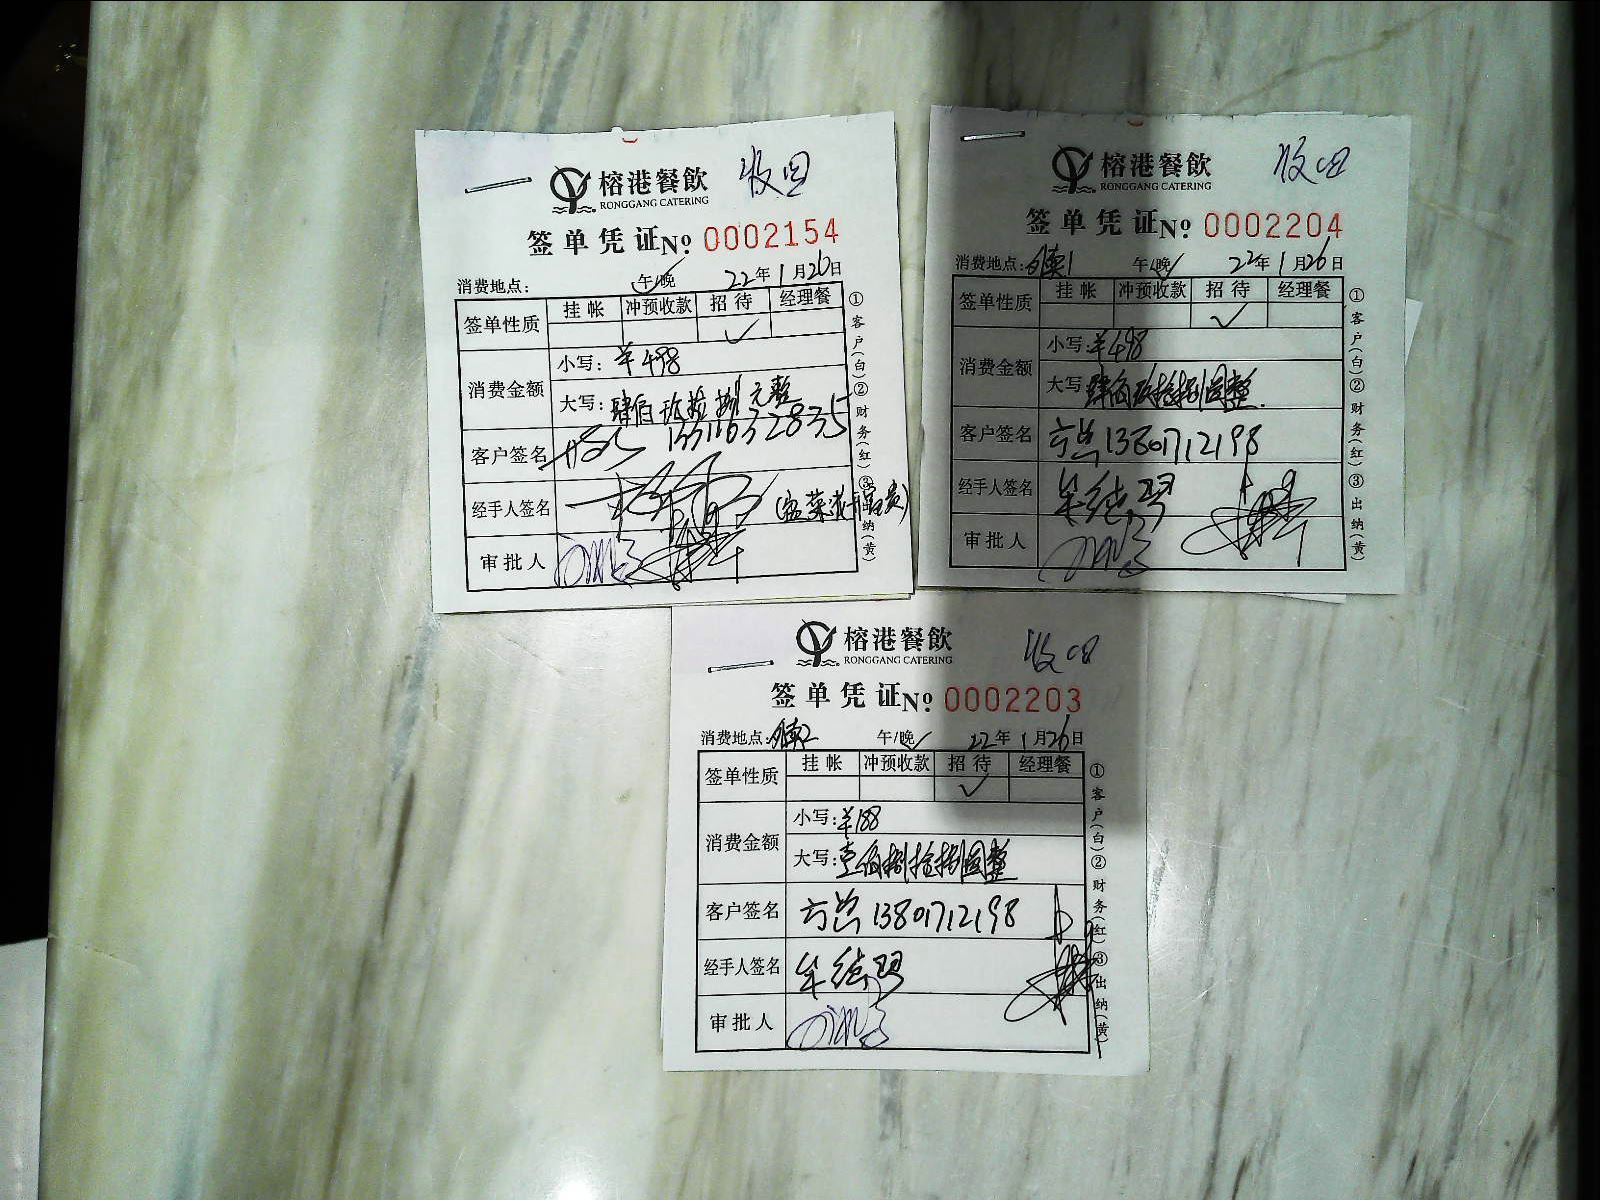 榕港餐飲 收回
RONGGANG CATERING
签单凭证 № 0002154
消费地点: 午/晚✓ 22年1月26日
签单性质 挂帐 冲预收款 招待 经理餐
✓
消费金额 小写: ¥498
大写: 肆佰玖拾捌元整
客户签名 13311632835
经手人签名
审批人
①客户(白)②财务(红)③出纳(黄)
榕港餐飲 收回
RONGGANG CATERING
签单凭证 №: 0002204
消费地点: 1 午/晚✓ 22年1月26日
签单性质 挂帐 冲预收款 招待 经理餐
✓
消费金额 小写: ¥498
大写: 肆佰玖拾捌圆整
客户签名 方总 13801712198
经手人签名 牟德琴
审批人
①客户(白)②财务(红)③出纳(黄)
榕港餐飲 收回
RONGGANG CATERING
签单凭证 №: 0002203
消费地点: 2 午/晚✓ 22年1月26日
签单性质 挂帐 冲预收款 招待 经理餐
✓
消费金额 小写: ¥188
大写: 壹佰捌拾捌圆整
客户签名 方总 13801712198
经手人签名 牟德琴
审批人
①客户(白)②财务(红)③出纳(黄)